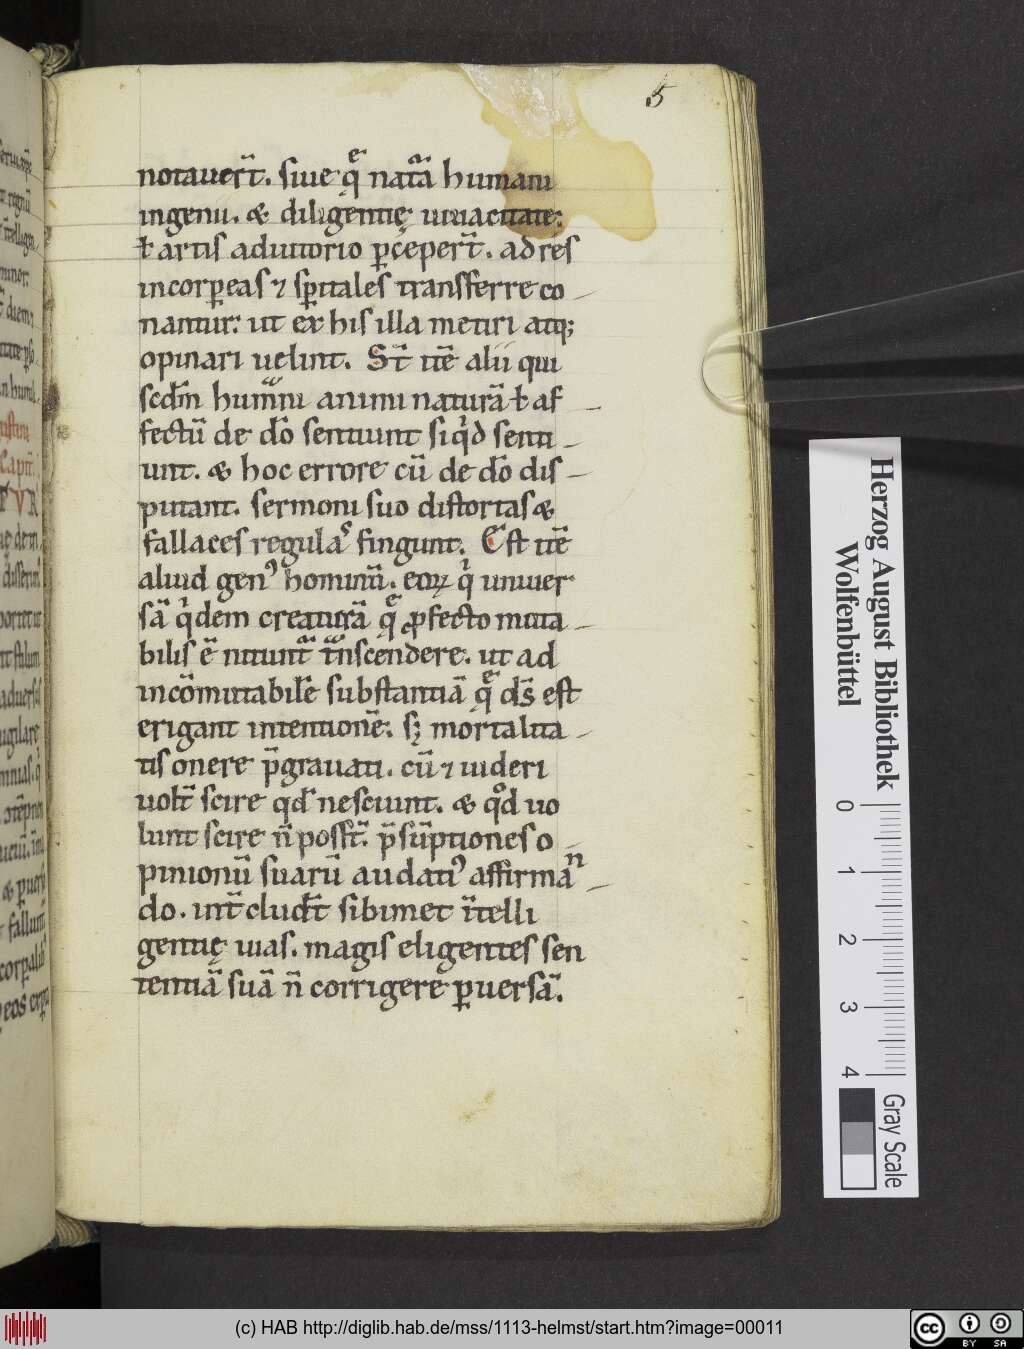 5
notauer̄t. siue q̄ natͣ̄ humani
ingenii. & diligentię uiuacitate;
ł artis adiutorio ꝑceper̄t. ad res
incorꝑeas ⁊ sp̄itales transferre co
nantur: ut ex his illa metiri atq;
opinari uelint. St̄ itē alii qui
scdm̄ humͣni animi naturā ł af
fectū de dō sentiunt siqͥd senti
unt. & hoc errore cū de dō dis
putant. sermoni suo distortas &
fallaces regulaˢ fingunt. Est itē
aliud genꝰ hominū. eoꝝ qͥ uniuer
sā qͥdem creaturā qͤ̄ ꝓfecto muta
bilis ē nitunt̄ tͣnscendere. ut ad
incōmutabilē substantiā qͤ̄ ds̄ est
erigant intentionē: sꝫ mortalita
tis onere p̄grauati. cū ⁊ uideri
uolt̄ scire qd̄ nesciunt. & qͦd uo
lunt scire n̄ poss̄t. p̄sūptiones o
pinionū suarū audatiꝰ affirmaⁿ
do. int̄cludt̄ sibimet ītelli
gentię uias. magis eligentes sen
tentiā suā n̄ corrigere ꝑuersā.
Herzog August Bibliothek
Wolfenbüttel
0 1 2 3 4
Gray Scale
(c) HAB http://diglib.hab.de/mss/1113-helmst/start.htm?image=00011
cc BY SA